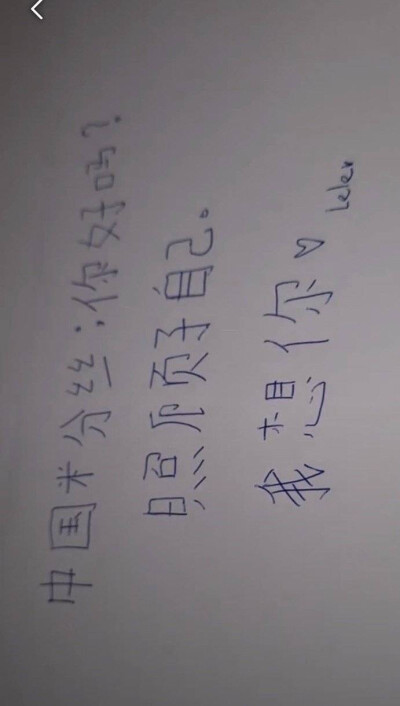 中国米分丝：你好吗？
照顾好自己。
我想你♡
Leler